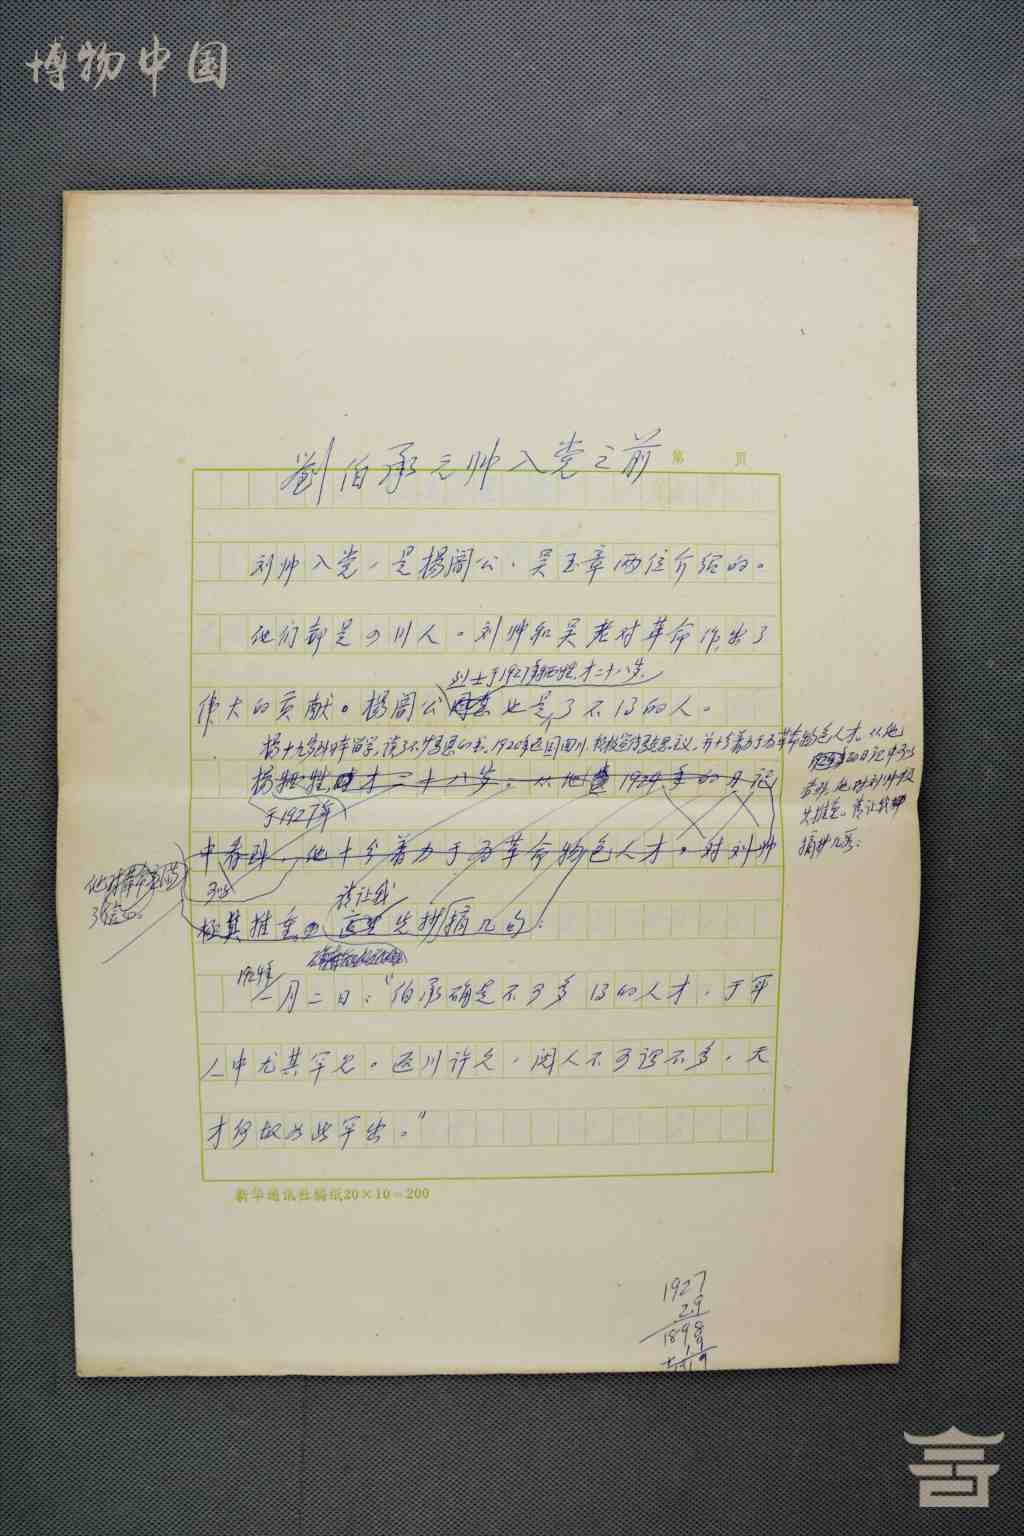 博物中国
劉伯承元帅入党之前
第 頁
刘帅入党，是杨闇公、吴玉章两位介绍的。
他们都是四川人。刘帅和吴老对革命作出了
烈士于1927年牺牲，才二十八岁，
伟大的贡献。杨闇公也是了不得的人。
杨十九岁到日本留学，读了不少马恩的书。1920年返回四川，积极宣传马克思主义，并十分着力于为革命物色人才。从他
的日记中可以
看到，他对刘帅极
其推重。请让我
摘抄几句：
杨牺牲时才二十八岁。从他 1924年的日记
于1927年
中看到，他十分着力于为革命物色人才。对刘帅
可以
请让我
极其推重。先抄摘几句：
1924年
一月二日：“伯承确是不可多得的人才，于军
人中尤其罕见。返川许久，阅人不可谓不多，天
才何故如此罕出。”
新华通讯社稿纸20×10=200
1927
29
1898
19